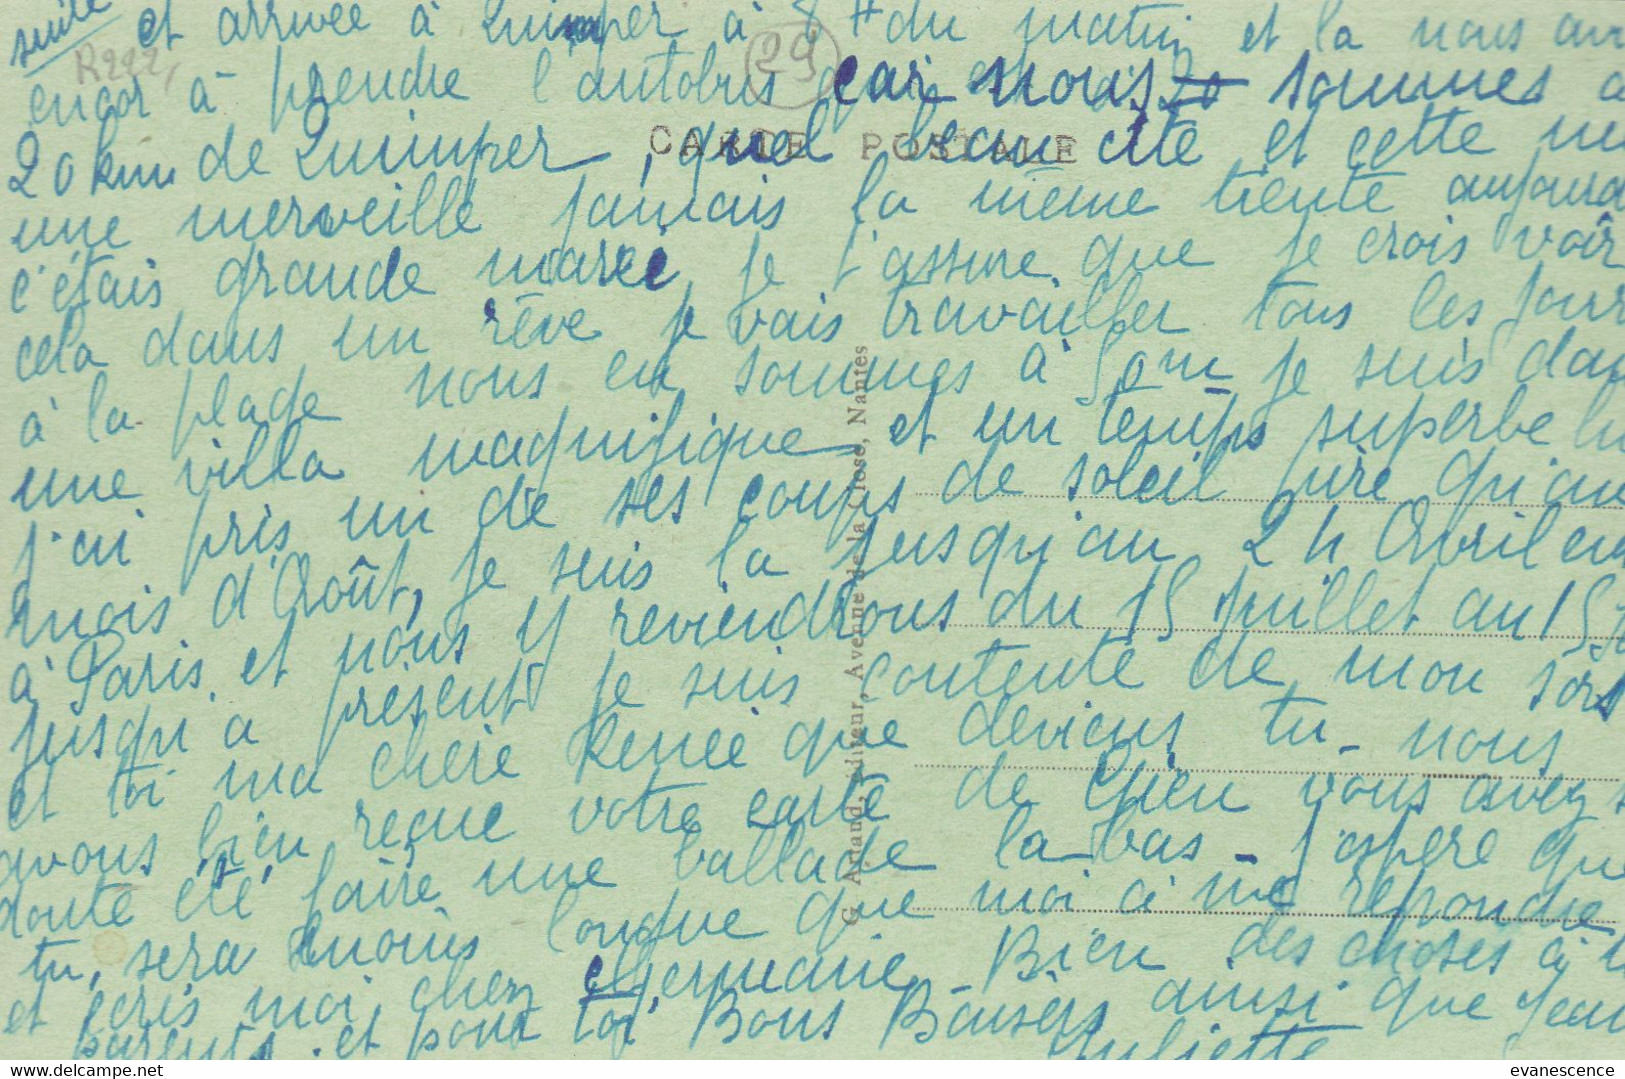 suite et arrivée à Quimper à 8 H du matin et la nous
R222,
29
encor à prendre l'autobus car nous sommes a
CARTE POSTALE
20 km de Quimper, quel beau cite et cette
une merveille jamais la même tiente aujourd
c'étais grande marée je t'assure que je crois voir
cela dans un rêve je vais travailler tous les jour
à la plage nous en sommes à 50m je suis dan
une villa magnifique et un temps superbe
j'ai pris un de ses coups de soleil pire qu'au
mois d'Août, je suis la jusqu'au 24 Avril
à Paris. et nous y reviendrons du 15 juillet au 15
jusqu'a présent je suis contente de mon sort
et toi ma chère Renée que deviens tu - nous
avons bien reçue votre carte de Gien vous avez
doute été faire une ballade la bas - J'espère que
tu, sera moins longue que moi à me repondre
et écris moi chez Germaine - Bien des choses à
parents. et pour toi Bons Baisers ainsi que Jean
Juliette
G. Artaud, éditeur, Avenue de la Close, Nantes
evanescence